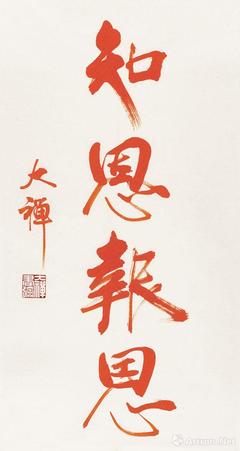 知恩報恩
大禪
Artron.Net